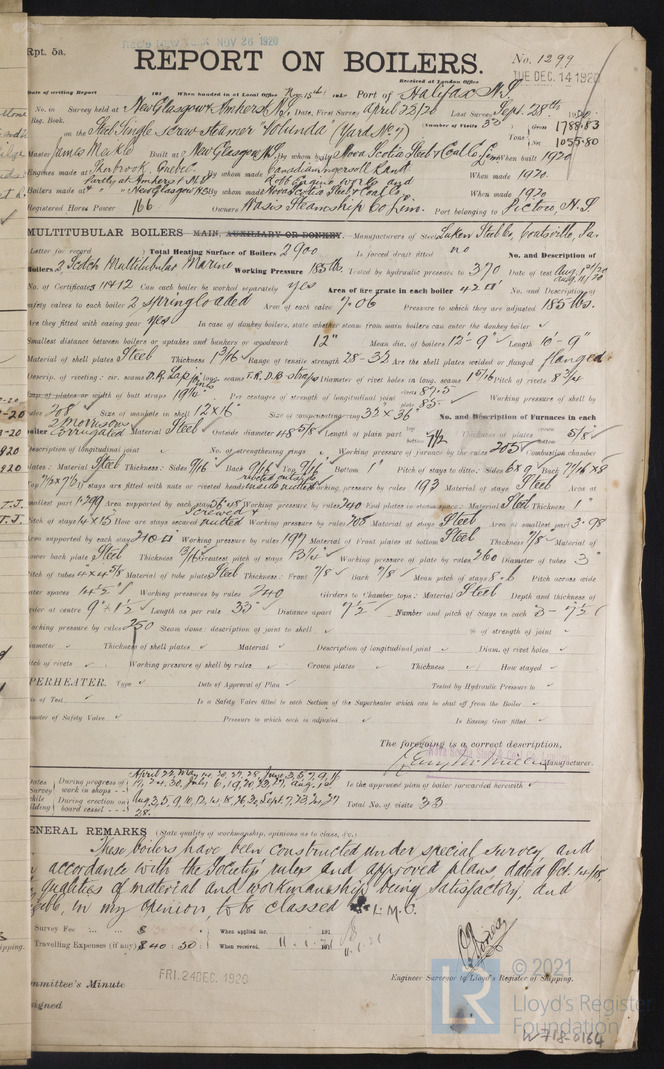 Rpt. 5a.
NOV 26 1920
REPORT ON BOILERS.
No. 1299
Received at London Office
TUE. DEC. 14 1920
Date of writing Report 191 When handed in at Local Office Nov 15th 1920 Port of Halifax N.S.
No. in Survey held at New Glasgow & Amherst N.S. Date, First Survey April 22/20 Last Survey Sept. 28th 1920
Reg. Book. (Number of Visits 33
on the Steel Single Screw Steamer (Yard No. 7) Tons Gross 1788.83 Net 1055.80
Master James Meikle Built at New Glasgow N.S. By whom built Nova Scotia Steel & Coal Co. Lim. When built 1920
Engines made at Sherbrook, Quebec. By whom made Canadian Ingersoll Rand When made 1920.
Partly at Amherst N.S. Robb Engine Works and
Boilers made at & New Glasgow N.S. By whom made Nova Scotia Steel & Coal Co. When made 1920
Registered Horse Power 166 Owners Steamship Co Lim. Port belonging to Pictou, N.S.
MULTITUBULAR BOILERS MAIN, AUXILIARY OR DONKEY. Manufacturers of Steel Luken Steel Co. Coatsville, Pa.
Letter for record Total Heating Surface of Boilers 2900 Is forced draft fitted no No. and Description of
Boilers 2 Scotch Multitubular Marine Working Pressure 185 lbs. Tested by hydraulic pressure to 370 Date of test
No. of Certificate Can each boiler be worked separately yes Area of fire grate in each boiler 42 □' No. and Description of
safety valves to each boiler 2 spring loaded Area of each valve 7.06 Pressure to which they are adjusted 185 lbs.
Are they fitted with easing gear yes In case of donkey boilers, state whether steam from main boilers can enter the donkey boiler ✓
Smallest distance between boilers or uptakes and bunkers or woodwork 12" Mean dia. of boilers 12'-9" Length 10'-9"
Material of shell plates Steel Thickness 1 3/16 Range of tensile strength 28-32 Are the shell plates welded or flanged flanged
Descrip. of riveting: cir. seams D.R. Lap long. seams T.R. D.B. straps Diameter of rivet holes in long. seams 1 5/16 Pitch of rivets 8 3/4
Lap of plates or width of butt straps 19 1/2 Per centages of strength of longitudinal joint 87.5 85 Working pressure of shell by
rules 208 Size of manhole in shell 12 x 16 Size of compensating ring 32 x 36 No. and Description of Furnaces in each
boiler 2 Morrisons Corrugated Material Steel Outside diameter 48 5/8 Length of plain part top bottom 7 1/2 Thickness of plates 5/8
Description of longitudinal joint ✓ No. of strengthening rings ✓ Working pressure of furnace by the rules 205 Combustion chamber
plates: Material Steel Thickness: Sides 9/16 Back 9/16 Top 9/16 Bottom 1" Pitch of stays to ditto: Sides 6 x 9 Back 7 1/16 x 8
Top If stays are fitted with nuts or riveted heads riveted outside inside nutted Working pressure by rules 193 Material of stays Steel Area at
smallest part 1.799 Area supported by each stay 56.48 Working pressure by rules 240 End plates in steam space: Material Steel Thickness 1"
Pitch of stays 14 x 15 How are stays secured screwed & nutted Working pressure by rules 205 Material of stays Steel Area at smallest part 3.98
Area supported by each stay 210 □" Working pressure by rules 197 Material of Front plates at bottom Steel Thickness 7/8 Material of
Lower back plate Steel Thickness Greatest pitch of stays Working pressure of plate by rules 260 Diameter of tubes 3"
Pitch of tubes 4 x 4 3/8 Material of tube plates Steel Thickness: Front 7/8 Back 7/8 Mean pitch of stays Pitch across wide
water spaces Working pressures by rules 240 Girders to Chamber tops: Material Steel Depth and thickness of
girder at centre 9" x 1 1/2 Length as per rule 33 Distance apart 7 1/2 Number and pitch of Stays in each 3 - 7 1/2
Working pressure by rules 250 Steam dome: description of joint to shell ✓ % of strength of joint ✓
Diameter ✓ Thickness of shell plates ✓ Material ✓ Description of longitudinal joint ✓ Diam. of rivet holes ✓
Pitch of rivets ✓ Working pressure of shell by rules ✓ Crown plates Thickness ✓ How stayed ✓
SUPERHEATER. Type ✓ Date of Approval of Plan ✓ Tested by Hydraulic Pressure to ✓
Date of Test ✓ Is a Safety Valve fitted to each Section of the Superheater which can be shut off from the Boiler ✓
Diameter of Safety Valve ✓ Pressure to which each is adjusted ✓ Is Easing Gear fitted ✓
The foregoing is a correct description,
Manufacturer.
Dates of Survey while building
During progress of work in shops April 22, May 14, 20, 27, 28, June 3, 5, 7, 9, 16
During erection on board vessel 28.
Is the approved plan of boiler forwarded herewith ✓
Total No. of visits 33
GENERAL REMARKS (State quality of workmanship, opinions as to class, &c.)
These boilers have been constructed under special survey and
in accordance with the Society's rules and approved plans, dated Oct. 14/18,
qualities of material and workmanship being satisfactory, and
in my opinion, to be classed L.M.C.
Survey Fee $ When applied for, 191
Travelling Expenses (if any) $40:50 When received, 11.1.21
Engineer Surveyor to Lloyd's Register of Shipping.
Committee's Minute FRI. 24 DEC. 1920
Assigned
© 2021
LR
Lloyd's Register
Foundation
W718-0164